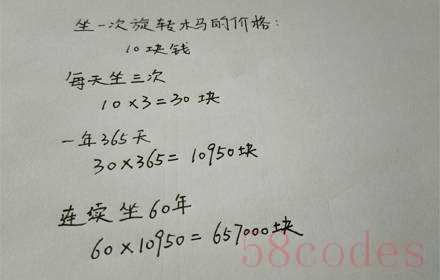 坐一次旋转木马的价格:
10块钱
每天坐三次
10×3=30块
一年365天
30×365=10950块
连续坐60年
60×10950=657000块
58codes